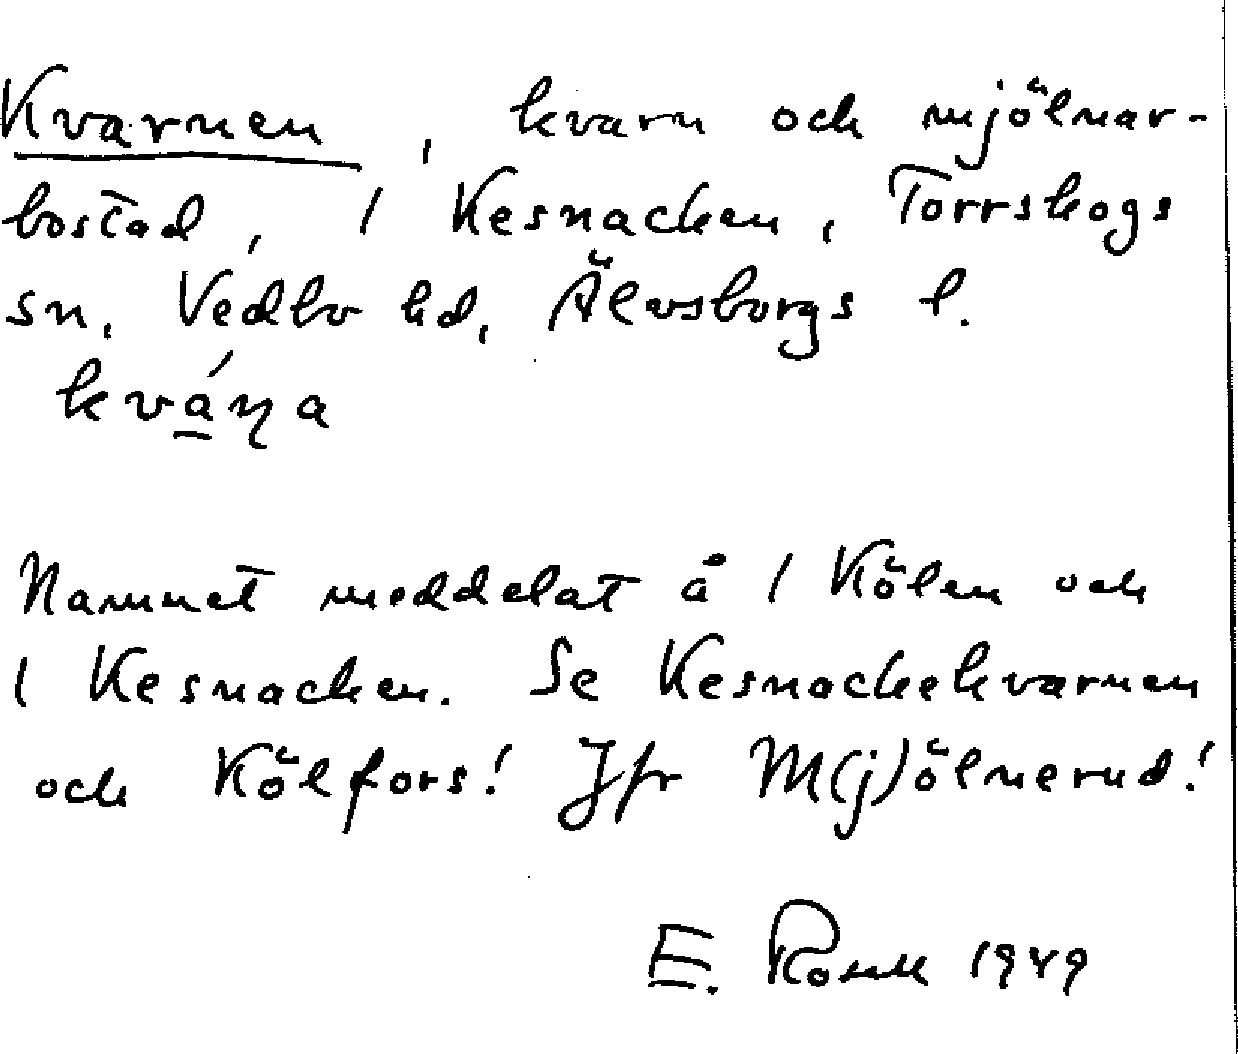 Kvarnen, kvarn och mjölnar-
bostad, 1 Kesnacken, Torrskogs
sn, Vedbo hd, Älvsborgs l.
kvá̱ɳa
Namnet meddelat å 1 Kölen och
1 Kesnacken. Se Kesnackekvarnen
och Kölfors! Jfr M(j)ölnerud!
E. 1949